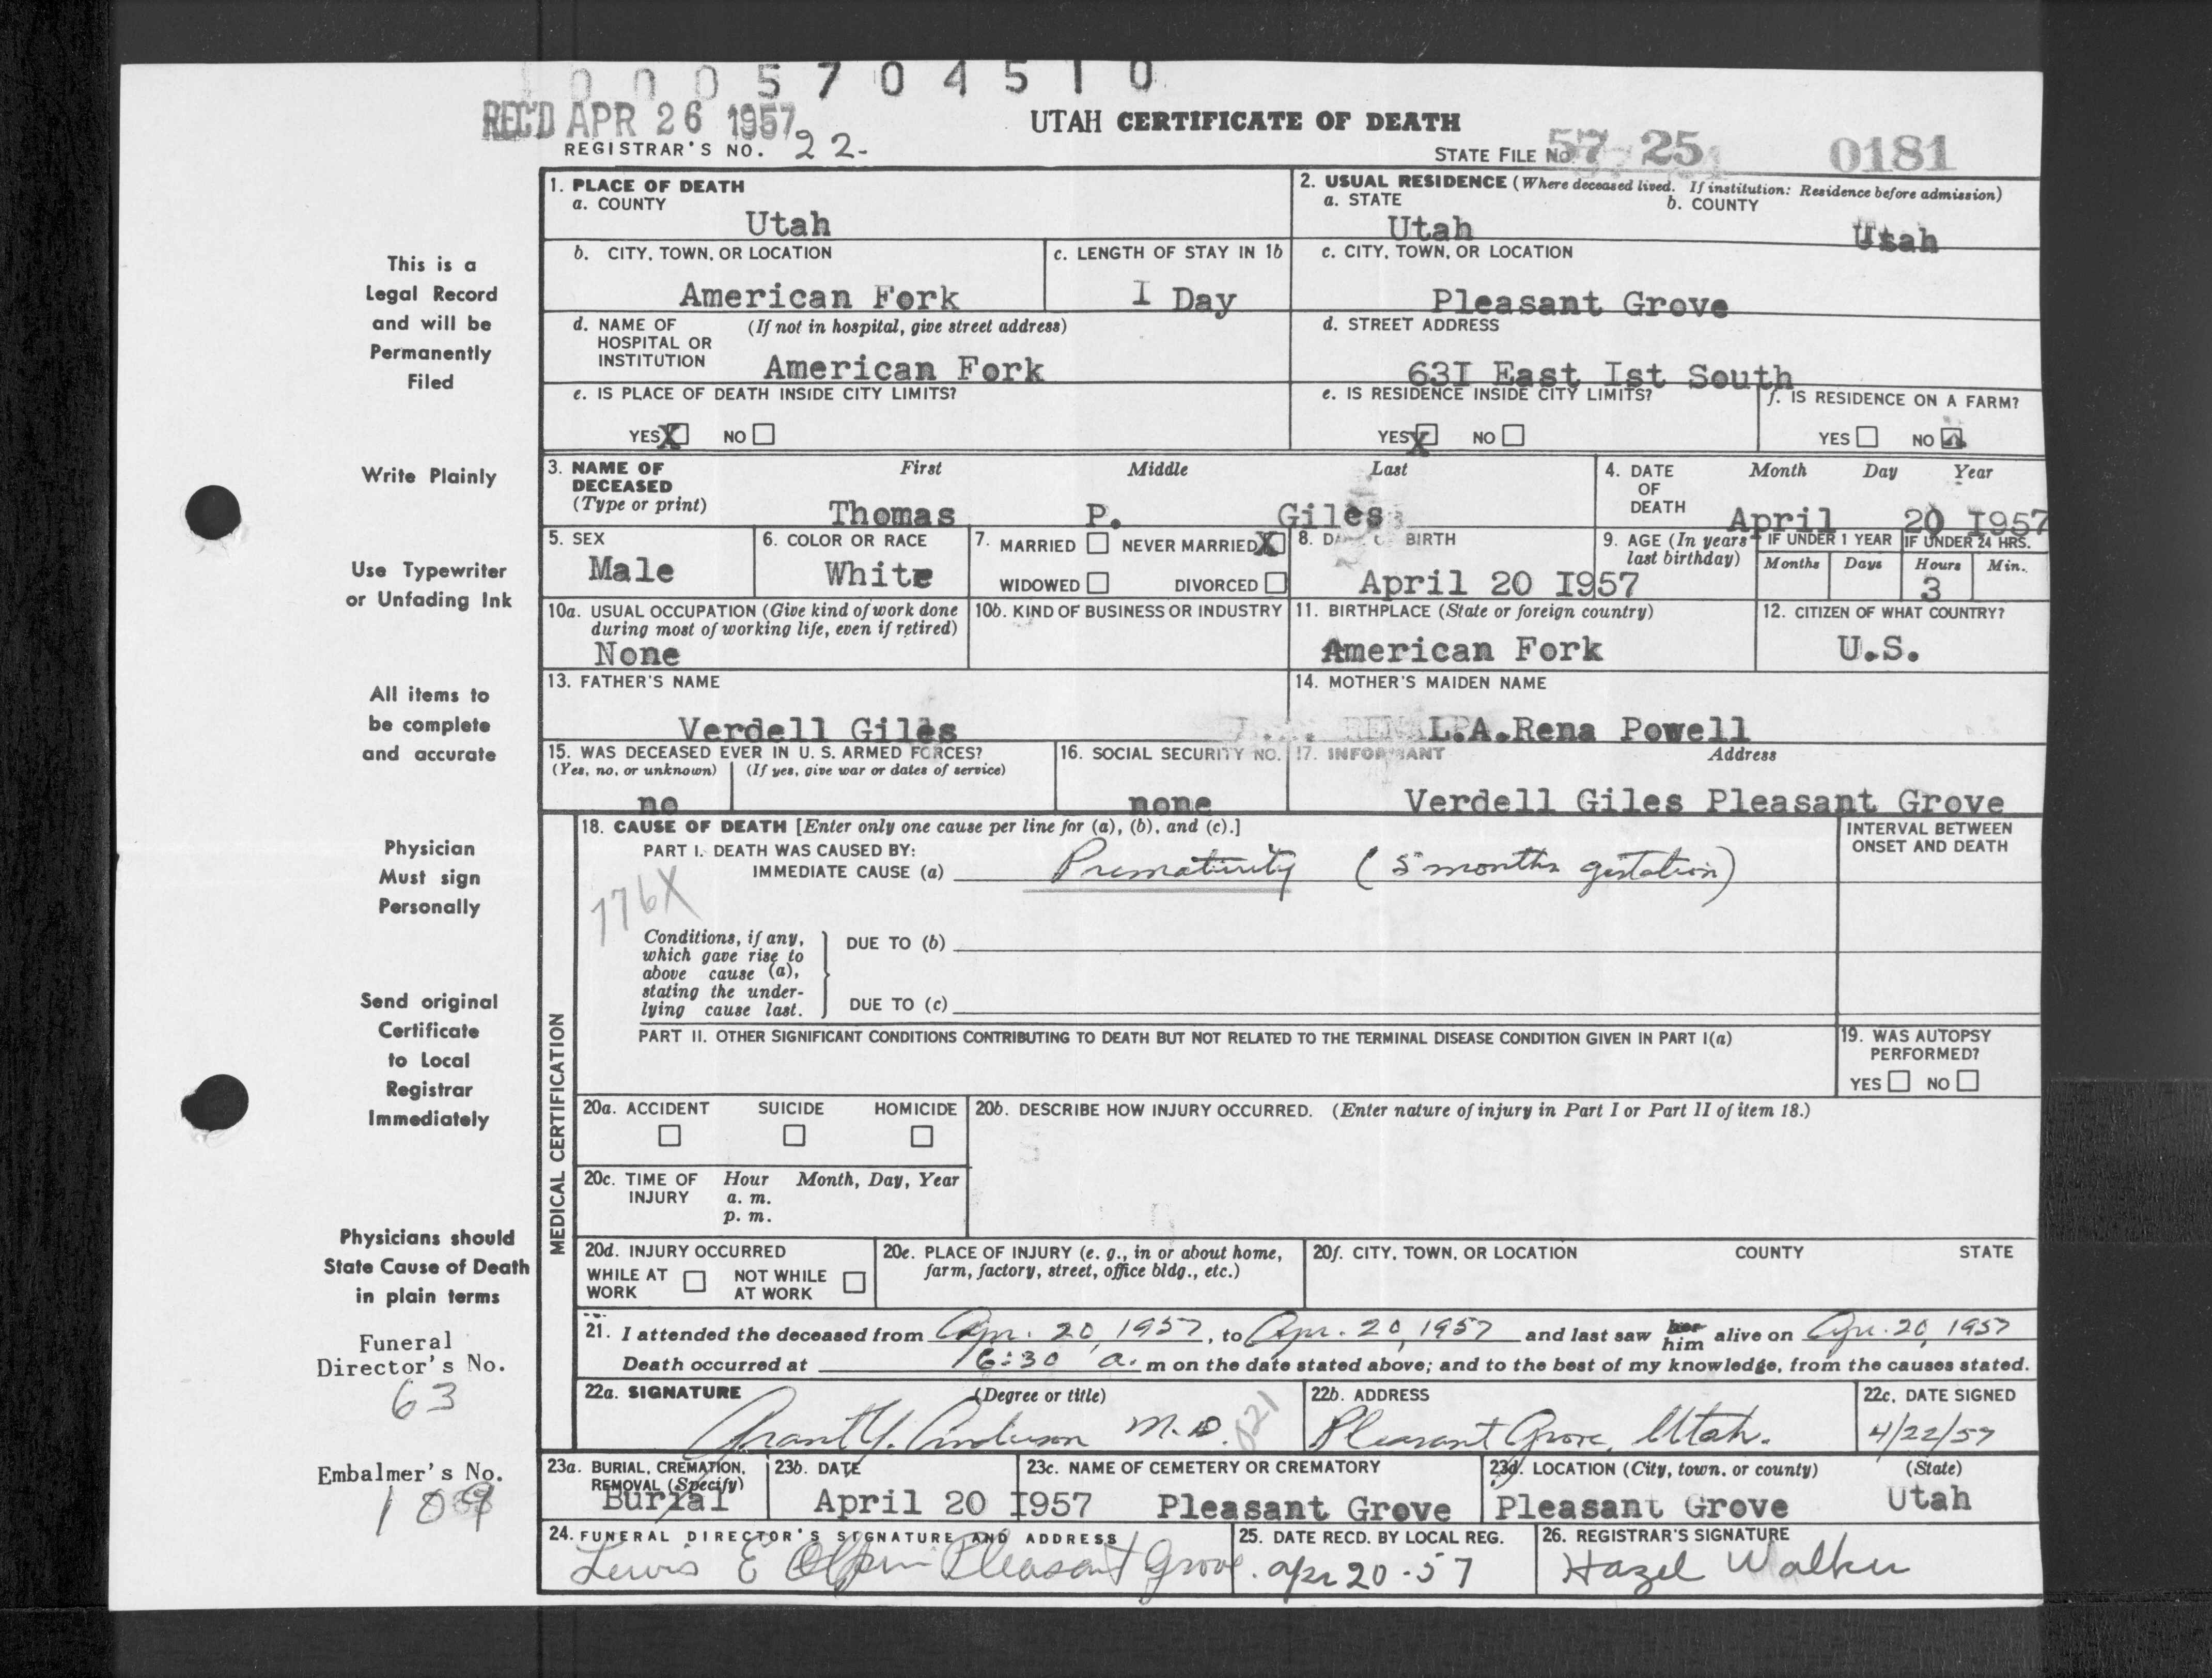 0005704510
REC'D APR 26 1957
UTAH CERTIFICATE OF DEATH
REGISTRAR'S NO. 22-
STATE FILE No. 57 25 0181
1. PLACE OF DEATH
a. COUNTY
Utah
2. USUAL RESIDENCE (Where deceased lived. If institution: Residence before admission)
a. STATE
b. COUNTY
Utah
Utah
b. CITY, TOWN, OR LOCATION
American Fork
c. LENGTH OF STAY IN 1b
I Day
c. CITY, TOWN, OR LOCATION
Pleasant Grove
d. NAME OF HOSPITAL OR INSTITUTION
(If not in hospital, give street address)
American Fork
d. STREET ADDRESS
63I East Ist South
e. IS PLACE OF DEATH INSIDE CITY LIMITS?
YES X NO
e. IS RESIDENCE INSIDE CITY LIMITS?
YES X NO
f. IS RESIDENCE ON A FARM?
YES NO
3. NAME OF DECEASED
(Type or print)
First Middle Last
Thomas P. Giles
4. DATE OF DEATH
Month Day Year
April 20 I957
5. SEX
Male
6. COLOR OR RACE
White
7. MARRIED NEVER MARRIED X
WIDOWED DIVORCED
8. DATE OF BIRTH
April 20 I957
9. AGE (In years last birthday)
IF UNDER 1 YEAR
Months Days
IF UNDER 24 HRS.
Hours Min.
3
10a. USUAL OCCUPATION (Give kind of work done during most of working life, even if retired)
None
10b. KIND OF BUSINESS OR INDUSTRY
11. BIRTHPLACE (State or foreign country)
American Fork
12. CITIZEN OF WHAT COUNTRY?
U.S.
13. FATHER'S NAME
Verdell Giles
14. MOTHER'S MAIDEN NAME
L.A.Rena Powell
15. WAS DECEASED EVER IN U. S. ARMED FORCES?
(Yes, no, or unknown) (If yes, give war or dates of service)
no
16. SOCIAL SECURITY NO.
none
17. INFORMANT Address
Verdell Giles Pleasant Grove
MEDICAL CERTIFICATION
18. CAUSE OF DEATH [Enter only one cause per line for (a), (b), and (c).]
PART I. DEATH WAS CAUSED BY:
IMMEDIATE CAUSE (a) Prematurity (5 months gestation)
INTERVAL BETWEEN ONSET AND DEATH
776X
Conditions, if any,
which gave rise to
above cause (a),
stating the under-
lying cause last.
DUE TO (b)
DUE TO (c)
PART II. OTHER SIGNIFICANT CONDITIONS CONTRIBUTING TO DEATH BUT NOT RELATED TO THE TERMINAL DISEASE CONDITION GIVEN IN PART I(a)
19. WAS AUTOPSY PERFORMED?
YES NO
20a. ACCIDENT SUICIDE HOMICIDE
20b. DESCRIBE HOW INJURY OCCURRED. (Enter nature of injury in Part I or Part II of item 18.)
20c. TIME OF INJURY
Hour Month, Day, Year
a. m.
p. m.
20d. INJURY OCCURRED
WHILE AT WORK
NOT WHILE AT WORK
20e. PLACE OF INJURY (e. g., in or about home, farm, factory, street, office bldg., etc.)
20f. CITY, TOWN, OR LOCATION COUNTY STATE
21. I attended the deceased from Apr. 20, 1957, to Apr. 20, 1957 and last saw her him alive on Apr. 20, 1957
Death occurred at 6:30 a. m on the date stated above; and to the best of my knowledge, from the causes stated.
22a. SIGNATURE (Degree or title)
Grant Y. Anderson M.D.
021
22b. ADDRESS
Pleasant Grove, Utah.
22c. DATE SIGNED
4/22/57
23a. BURIAL, CREMATION, REMOVAL (Specify)
Burial
23b. DATE
April 20 I957
23c. NAME OF CEMETERY OR CREMATORY
Pleasant Grove
23d. LOCATION (City, town, or county) (State)
Pleasant Grove Utah
24. FUNERAL DIRECTOR'S SIGNATURE AND ADDRESS
Lewis E Olpin Pleasant Grove.
25. DATE RECD. BY LOCAL REG.
Apr 20-57
26. REGISTRAR'S SIGNATURE
Hazel Walker
This is a
Legal Record
and will be
Permanently
Filed
Write Plainly
Use Typewriter
or Unfading Ink
All items to
be complete
and accurate
Physician
Must sign
Personally
Send original
Certificate
to Local
Registrar
Immediately
Physicians should
State Cause of Death
in plain terms
Funeral
Director's No.
63
Embalmer's No.
109